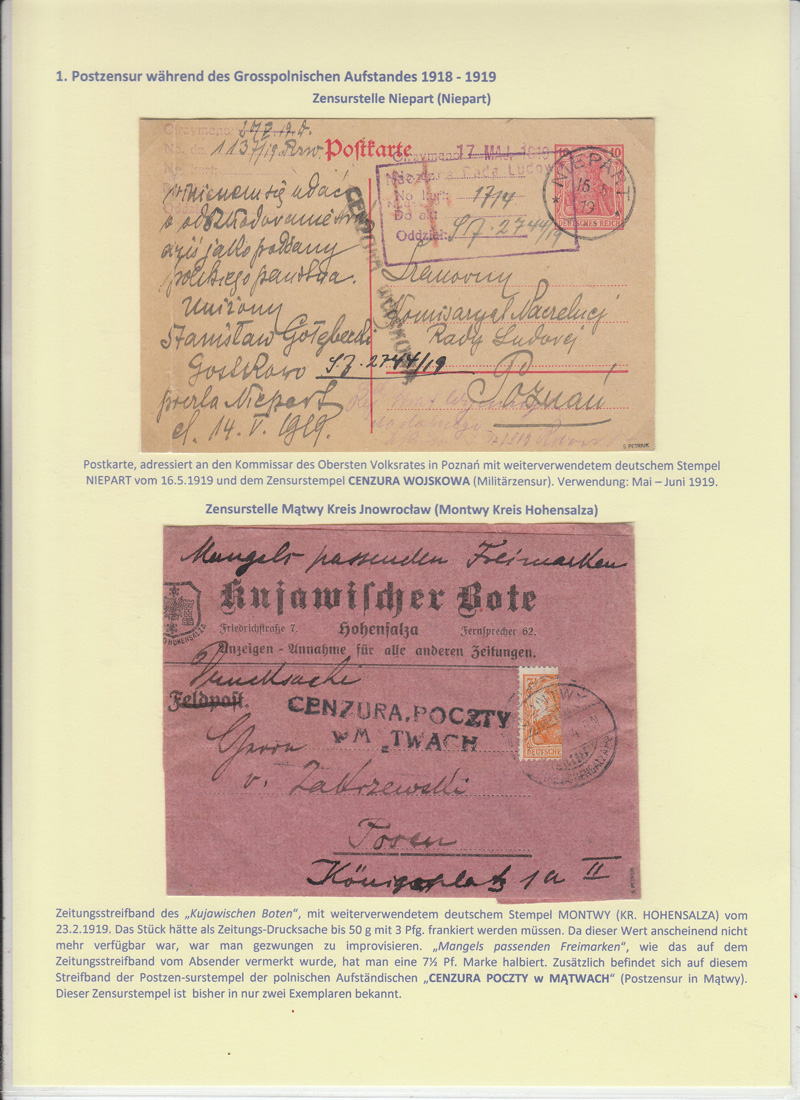 1. Postzensur während des Grosspolnischen Aufstandes 1918 - 1919
Zensurstelle Niepart (Niepart)
Otrzymano
No. dz. 1137/19. Rzw.
Postkarte
Otrzymano 17 MAJ. 1919
Naczelna Rada Ludowa
No kurr. 1714
Do akt
Oddział: S.J. 2744/19
10 10
DEUTSCHES REICH
NIEPART
16.5
19
CENZURA WOJSKOWA
o odszkodowanie
dziś jako poddany
polskiego państwa.
Uniżony
Stanisław Gołębecki
Gostkowo S.J. 2744/19
poczta Niepart
d. 14. V. 1919.
Szanowny
Komisaryat Naczelnej
Rady Ludowej
Poznań
S. PETRIUK
Postkarte, adressiert an den Kommissar des Obersten Volksrates in Poznań mit weiterverwendetem deutschem Stempel
NIEPART vom 16.5.1919 und dem Zensurstempel CENZURA WOJSKOWA (Militärzensur). Verwendung: Mai – Juni 1919.
Zensurstelle Mątwy Kreis Jnowrocław (Montwy Kreis Hohensalza)
Mangels passenden Freimarken
Kujawischer Bote
Friedrichstraße 7. Hohensalza Fernsprecher 62.
Anzeigen - Annahme für alle anderen Zeitungen.
HOHENSALZA
Drucksache
Feldpost.
CENZURA.POCZTY
w M TWACH
DEUTSCHES
MONTWY
Herrn
v. Zakrzewski
Posen
Königsplatz 1a II
S. PETRIUK
Zeitungsstreifband des „Kujawischen Boten“, mit weiterverwendetem deutschem Stempel MONTWY (KR. HOHENSALZA) vom
23.2.1919. Das Stück hätte als Zeitungs-Drucksache bis 50 g mit 3 Pfg. frankiert werden müssen. Da dieser Wert anscheinend nicht
mehr verfügbar war, war man gezwungen zu improvisieren. „Mangels passenden Freimarken“, wie das auf dem
Zeitungsstreifband vom Absender vermerkt wurde, hat man eine 7½ Pf. Marke halbiert. Zusätzlich befindet sich auf diesem
Streifband der Postzen-surstempel der polnischen Aufständischen „CENZURA POCZTY w MĄTWACH“ (Postzensur in Mątwy).
Dieser Zensurstempel ist bisher in nur zwei Exemplaren bekannt.